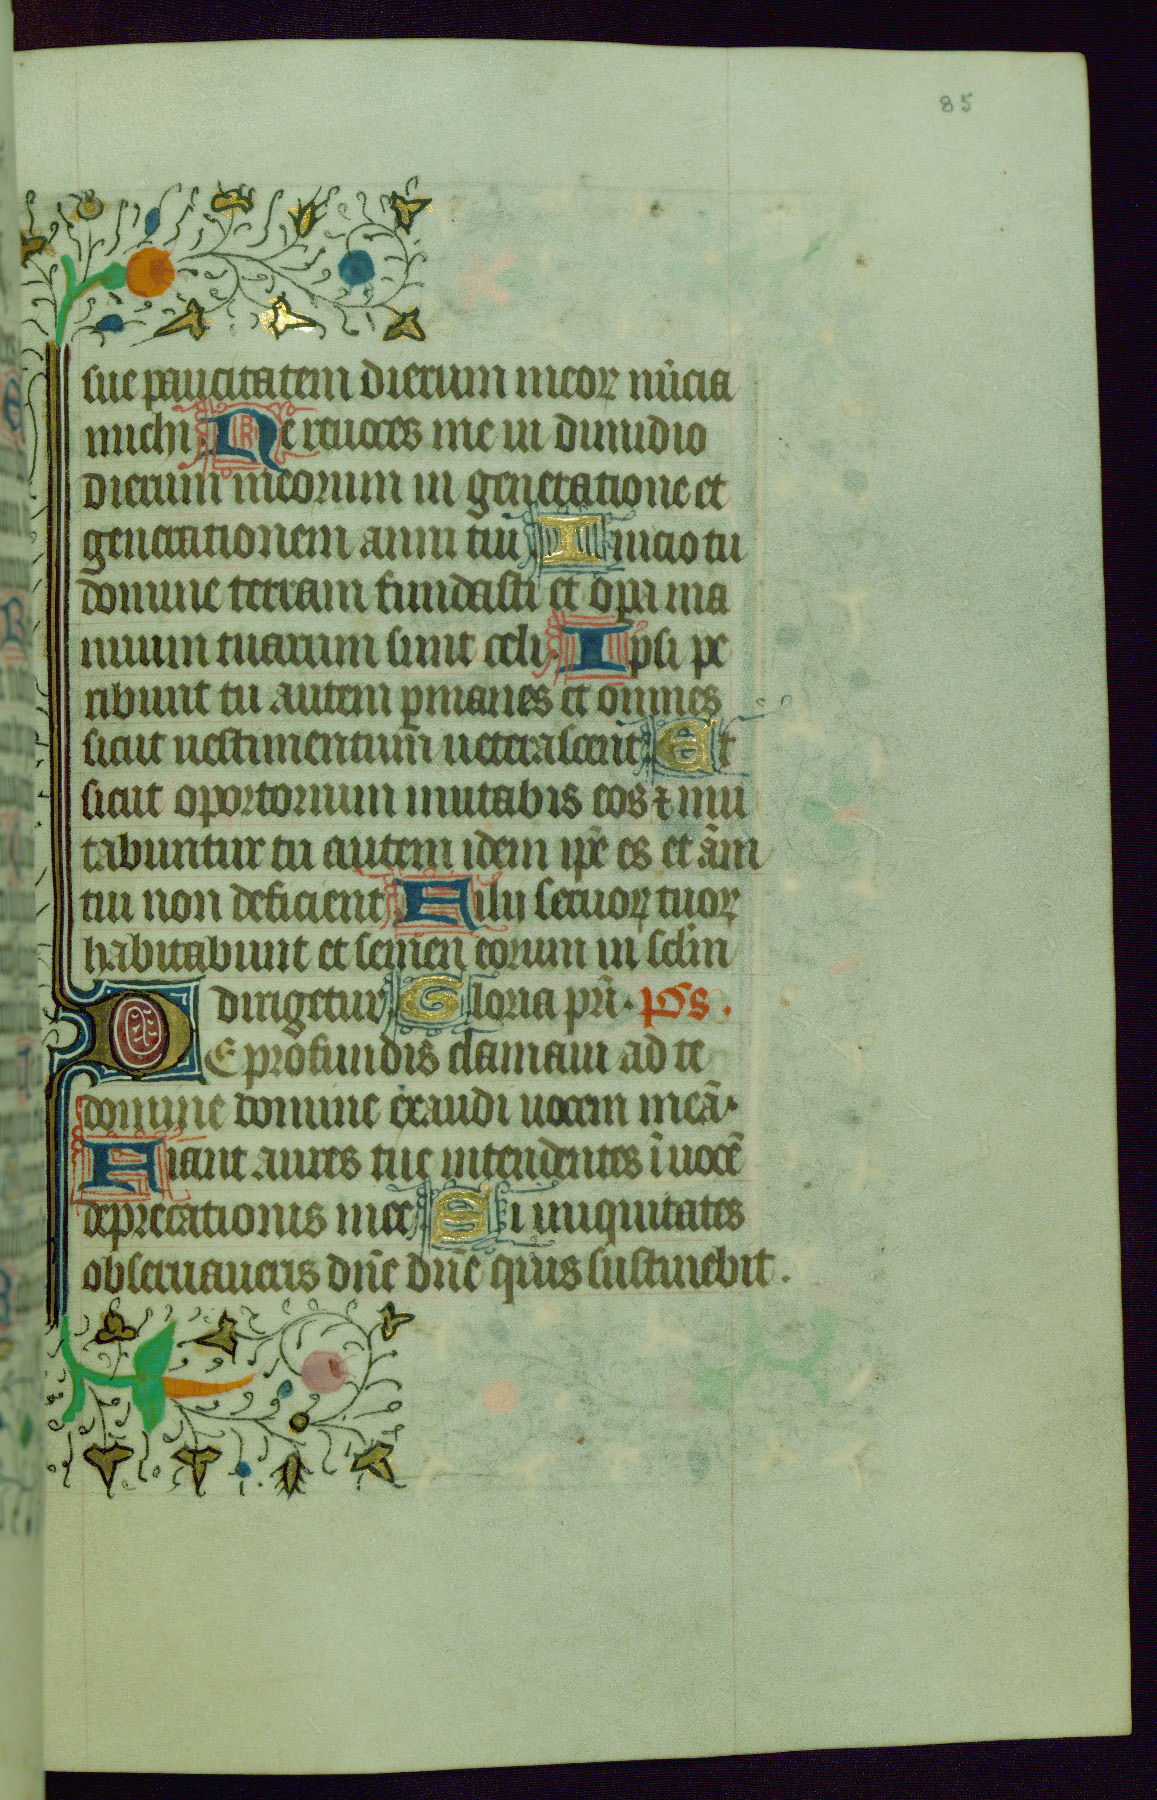 85
sue paucitatem dierum meoꝝ nũcia
michi Ne reuoces me in dimidio
dierum meorum in generatione et
generationem anni tui Inicio tu
domine terram fundasti et oꝑa ma
nuum tuarum sunt celi Ipsi pe
ribunt tu autem ꝑmanes et omnes
sicut uestimentum ueterascent Et
sicut oportorium mutabis eos ⁊ mu
tabuntur tu autem idem ip̃e es et ãni
tui non deficient Filii seruoꝝ tuoꝝ
habitabunt et semen eorum in sc̃lm
dirigetur Gloria pr̃i. p̃s.
De profundis clamaui ad te
domine domine exaudi uocem meã.
Fiant aures tue intendentes ĩ uocẽ
deprecationis mee Si iniquitates
obseruaueris dñe dñe quis sustinebit.